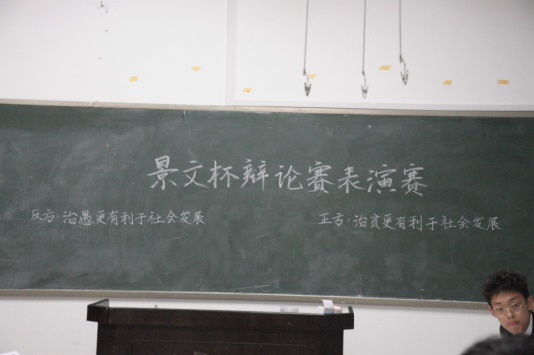 景文杯辩论赛表演赛
反方:治愚更有利于社会发展
正方:治贫更有利于社会发展